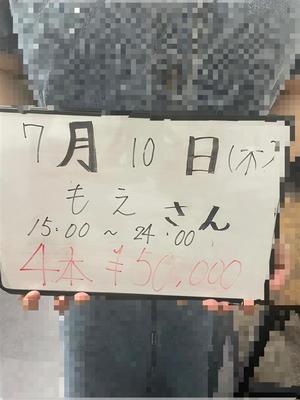 7月10日(木)
もえさん
15:00～24:00
4本 ¥50,000